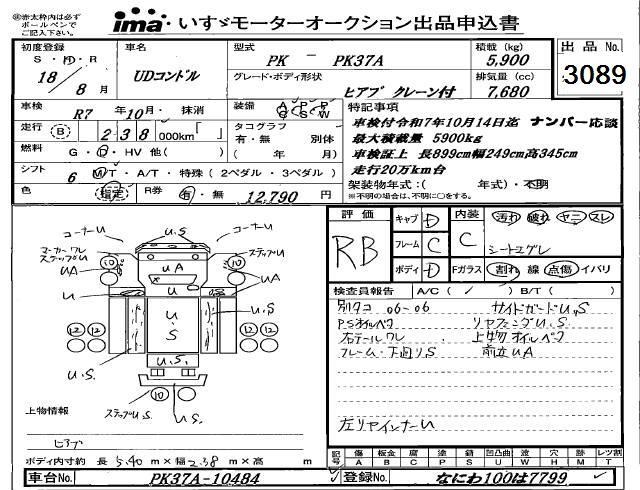 ※赤太枠内は必ず
ボールペンで
ご記入下さい。
ima いすゞモーターオークション出品申込書
初度登録
S・H・R
18/8月
車名
UDコンドル
型式
PK － PK37A
グレード・ボディ形状
ヒアブ クレーン付
積載 (kg)
5,900
排気量 (cc)
7,680
出品 No.
3089
車検
R7 年10月・抹消
装備
A P P
C S W
走行 B 238 000km「 」
タコグラフ
有・無 別体
( 年 月)
燃料
G・D・HV 他( )
シフト
6 MT・A/T・特殊 (2ペダル・3ペダル)
色 (指定)
R券 有・無 12,790 円
特記事項
車検付令和7年10月14日迄 ナンバー応談
最大積載量 5900kg
車検証上 長899cm幅249cm高345cm
走行20万km台
架装物年式:( 年式)・不明
※不明の場合は、不明に○をする。
評価
RB
キャブ D
フレーム C
ボディ D
内装
C
汚れ 破れ ヤニ スレ
シートコゲレ
Fガラス 割れ 線 点傷 イバリ
検査員報告 A/C ( ✓ ) B/T ( )
別タコ 06-06 サイドガードU,S
PSオイルベク リヤフェンダU.S
右テールワレ 上物オイルベク
フレーム・下回りS 前立UA
左リヤインナーU
コーナーU
U.S
コーナーU
マーカーワレ
ステップU
ステップU
UA
10
10
UA
UA
U
U
U.S
U.S
12
12
12
12
U.S.
U.S.
10
ステップU.S.
U.S.
上物情報
ヒアブ
ボディ内寸約 長 5.40 m×幅 2.38 m×高 m
記号
傷 板金 腐 塗 錆 凹凸曲 波 穴 無 レツ割
A B C P S U W H M T
車台No. PK37A-10484
登録No. なにわ100は7799
PK